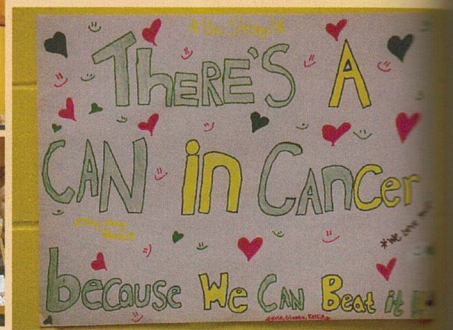 THERE'S A
CAN in CANcer
because We CAN Beat it